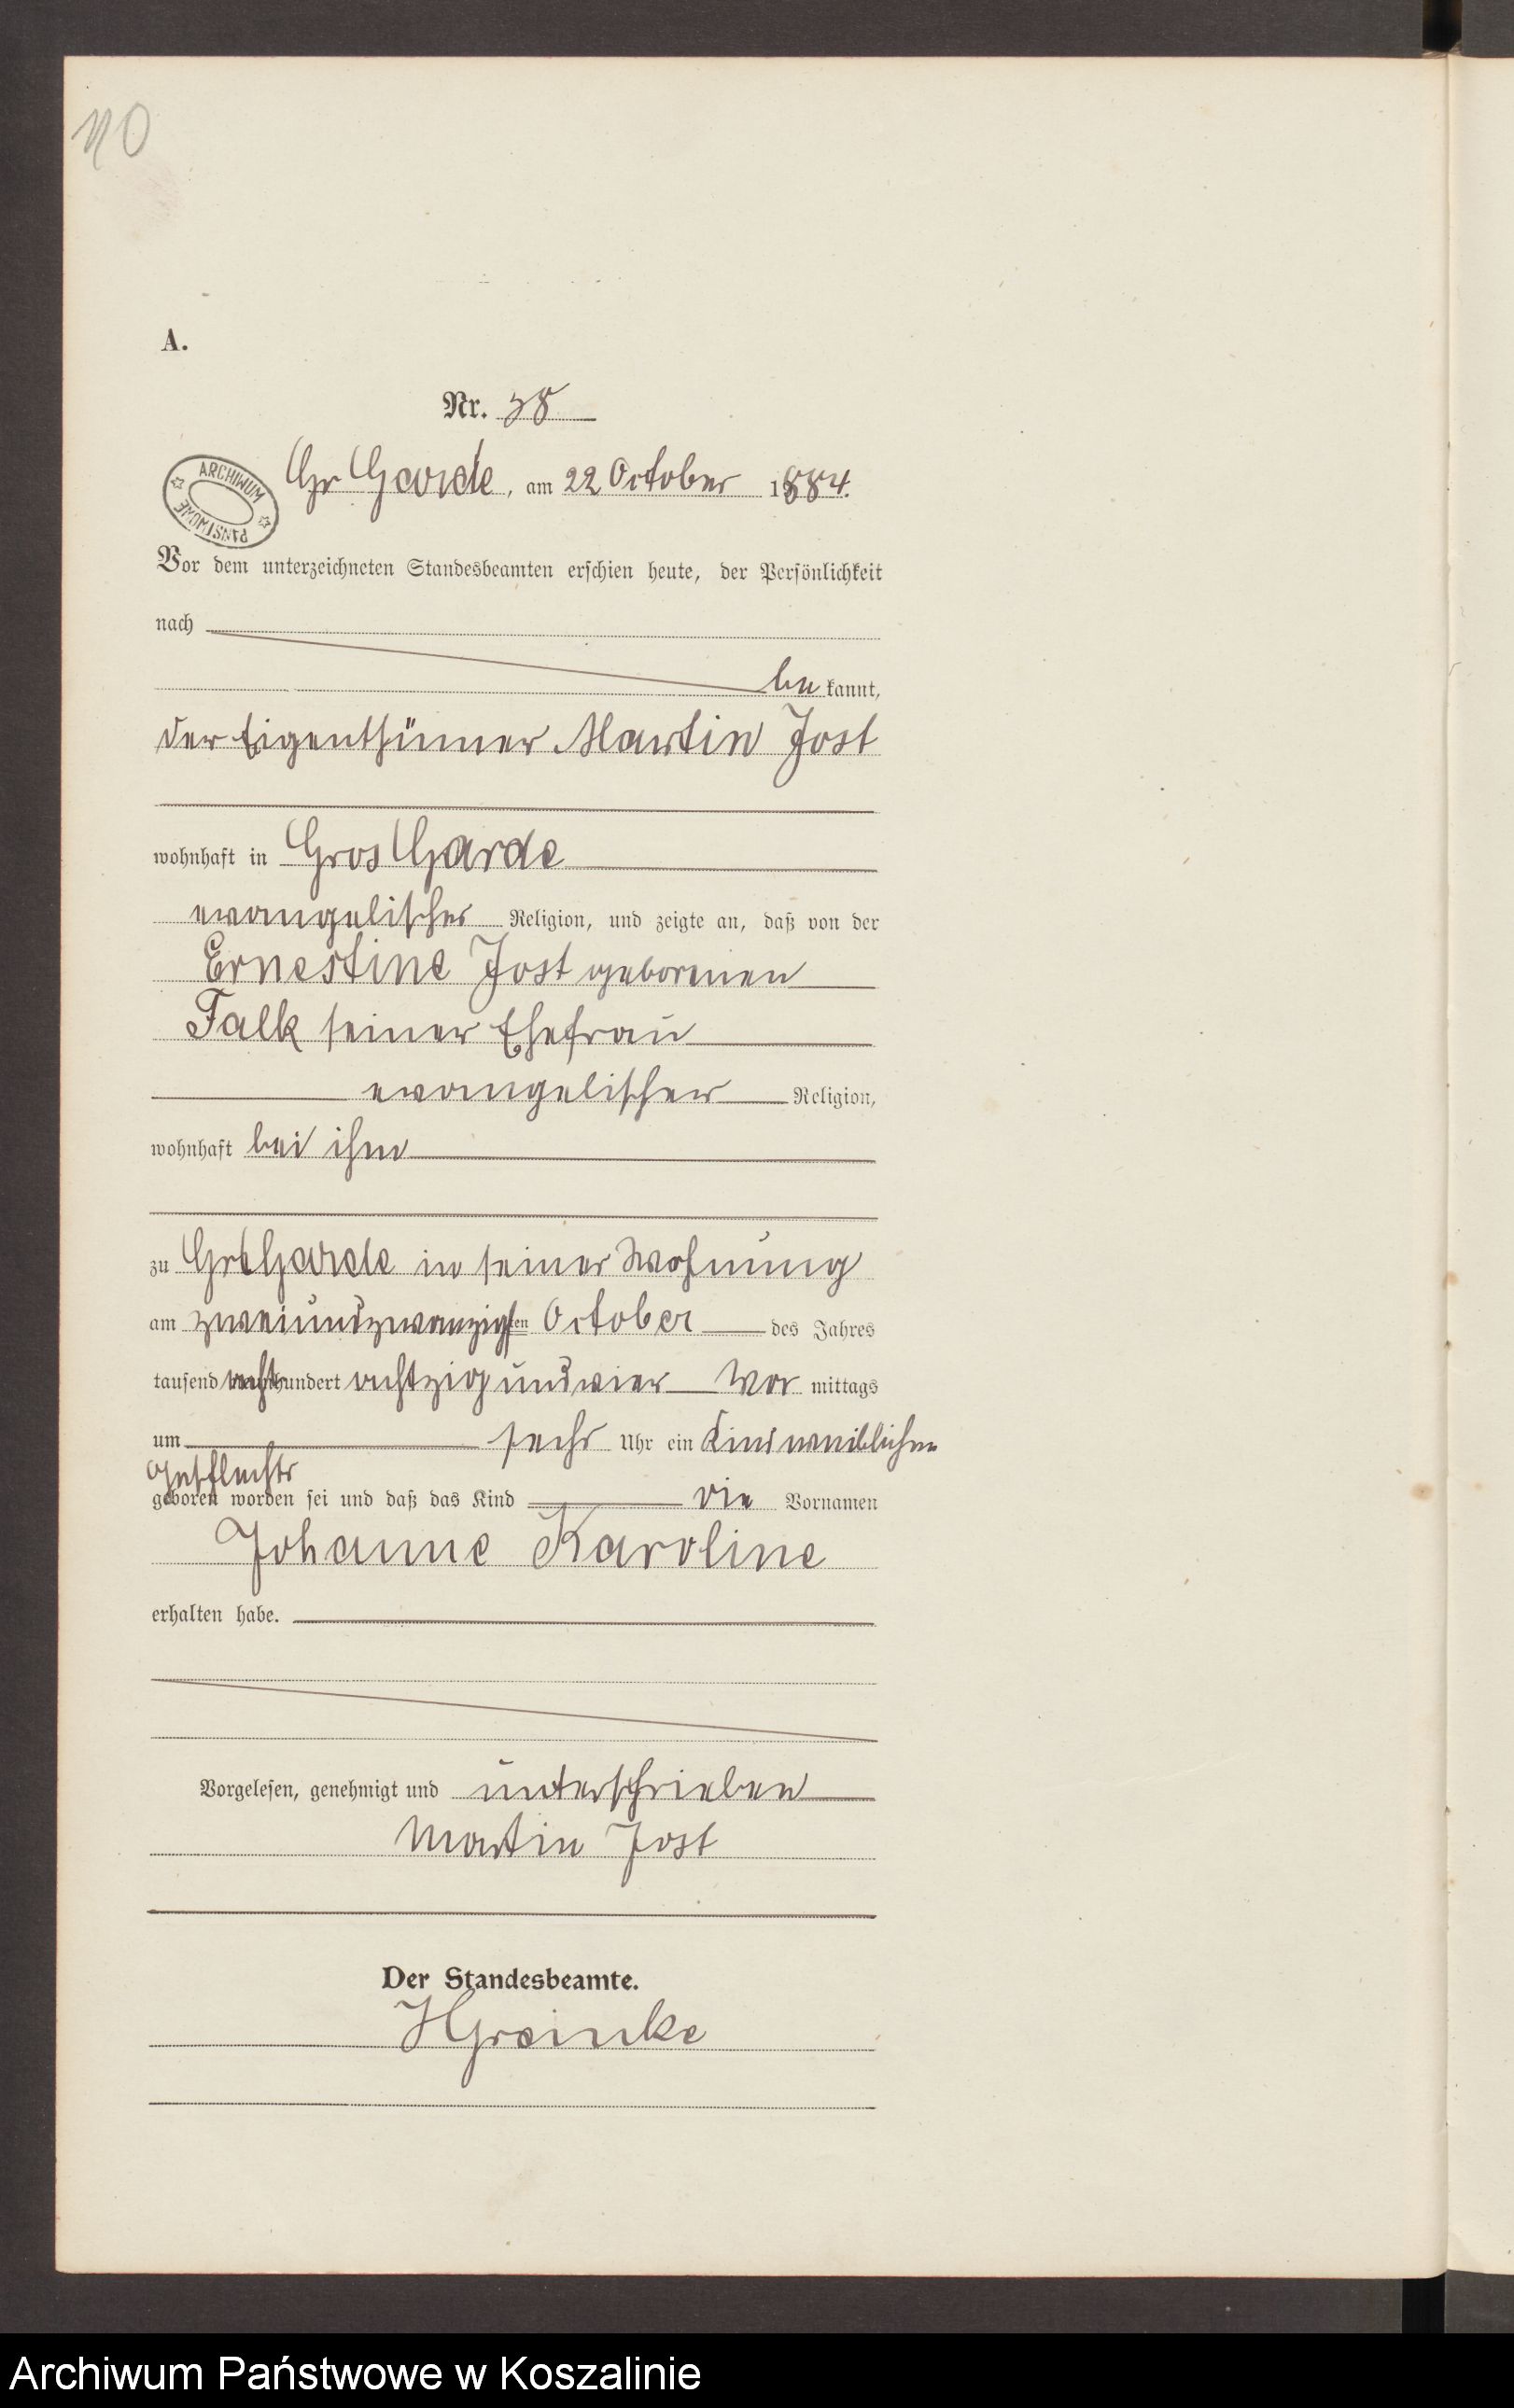 40
A.
Nr. 38
ARCHIWUM
PAŃSTWOWE
Gr Garde, am 22 October 1884.
Vor dem unterzeichneten Standesbeamten erschien heute, der Persönlichkeit
nach
bekannt,
der Eigenthümer Martin Jost
wohnhaft in Gros Garde
evangelischer Religion, und zeigte an, daß von der
Ernestine Jost geborenen
Falk seiner Ehefrau
evangelischer Religion,
wohnhaft bei ihm
zu Gr Garde in seiner Wohnung
am zweiundzwanzigsten October des Jahres
tausend achthundert achtzig und vier Vor mittags
um sechs Uhr ein Kind weiblichen
Geschlechts
geboren worden sei und daß das Kind die Vornamen
Johanne Karoline
erhalten habe.
Vorgelesen, genehmigt und unterschrieben
Martin Jost
Der Standesbeamte.
Archiwum Państwowe w Koszalinie